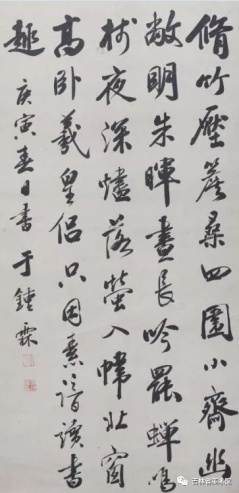 脩竹壓簷桑四圍小齋幽
敞明朱暉晝長吟罷蟬鳴
樹夜深燼落螢入幃北窗
高卧羲皇侶只因素諳讀書
趣 庚寅春日書 于鍾霖